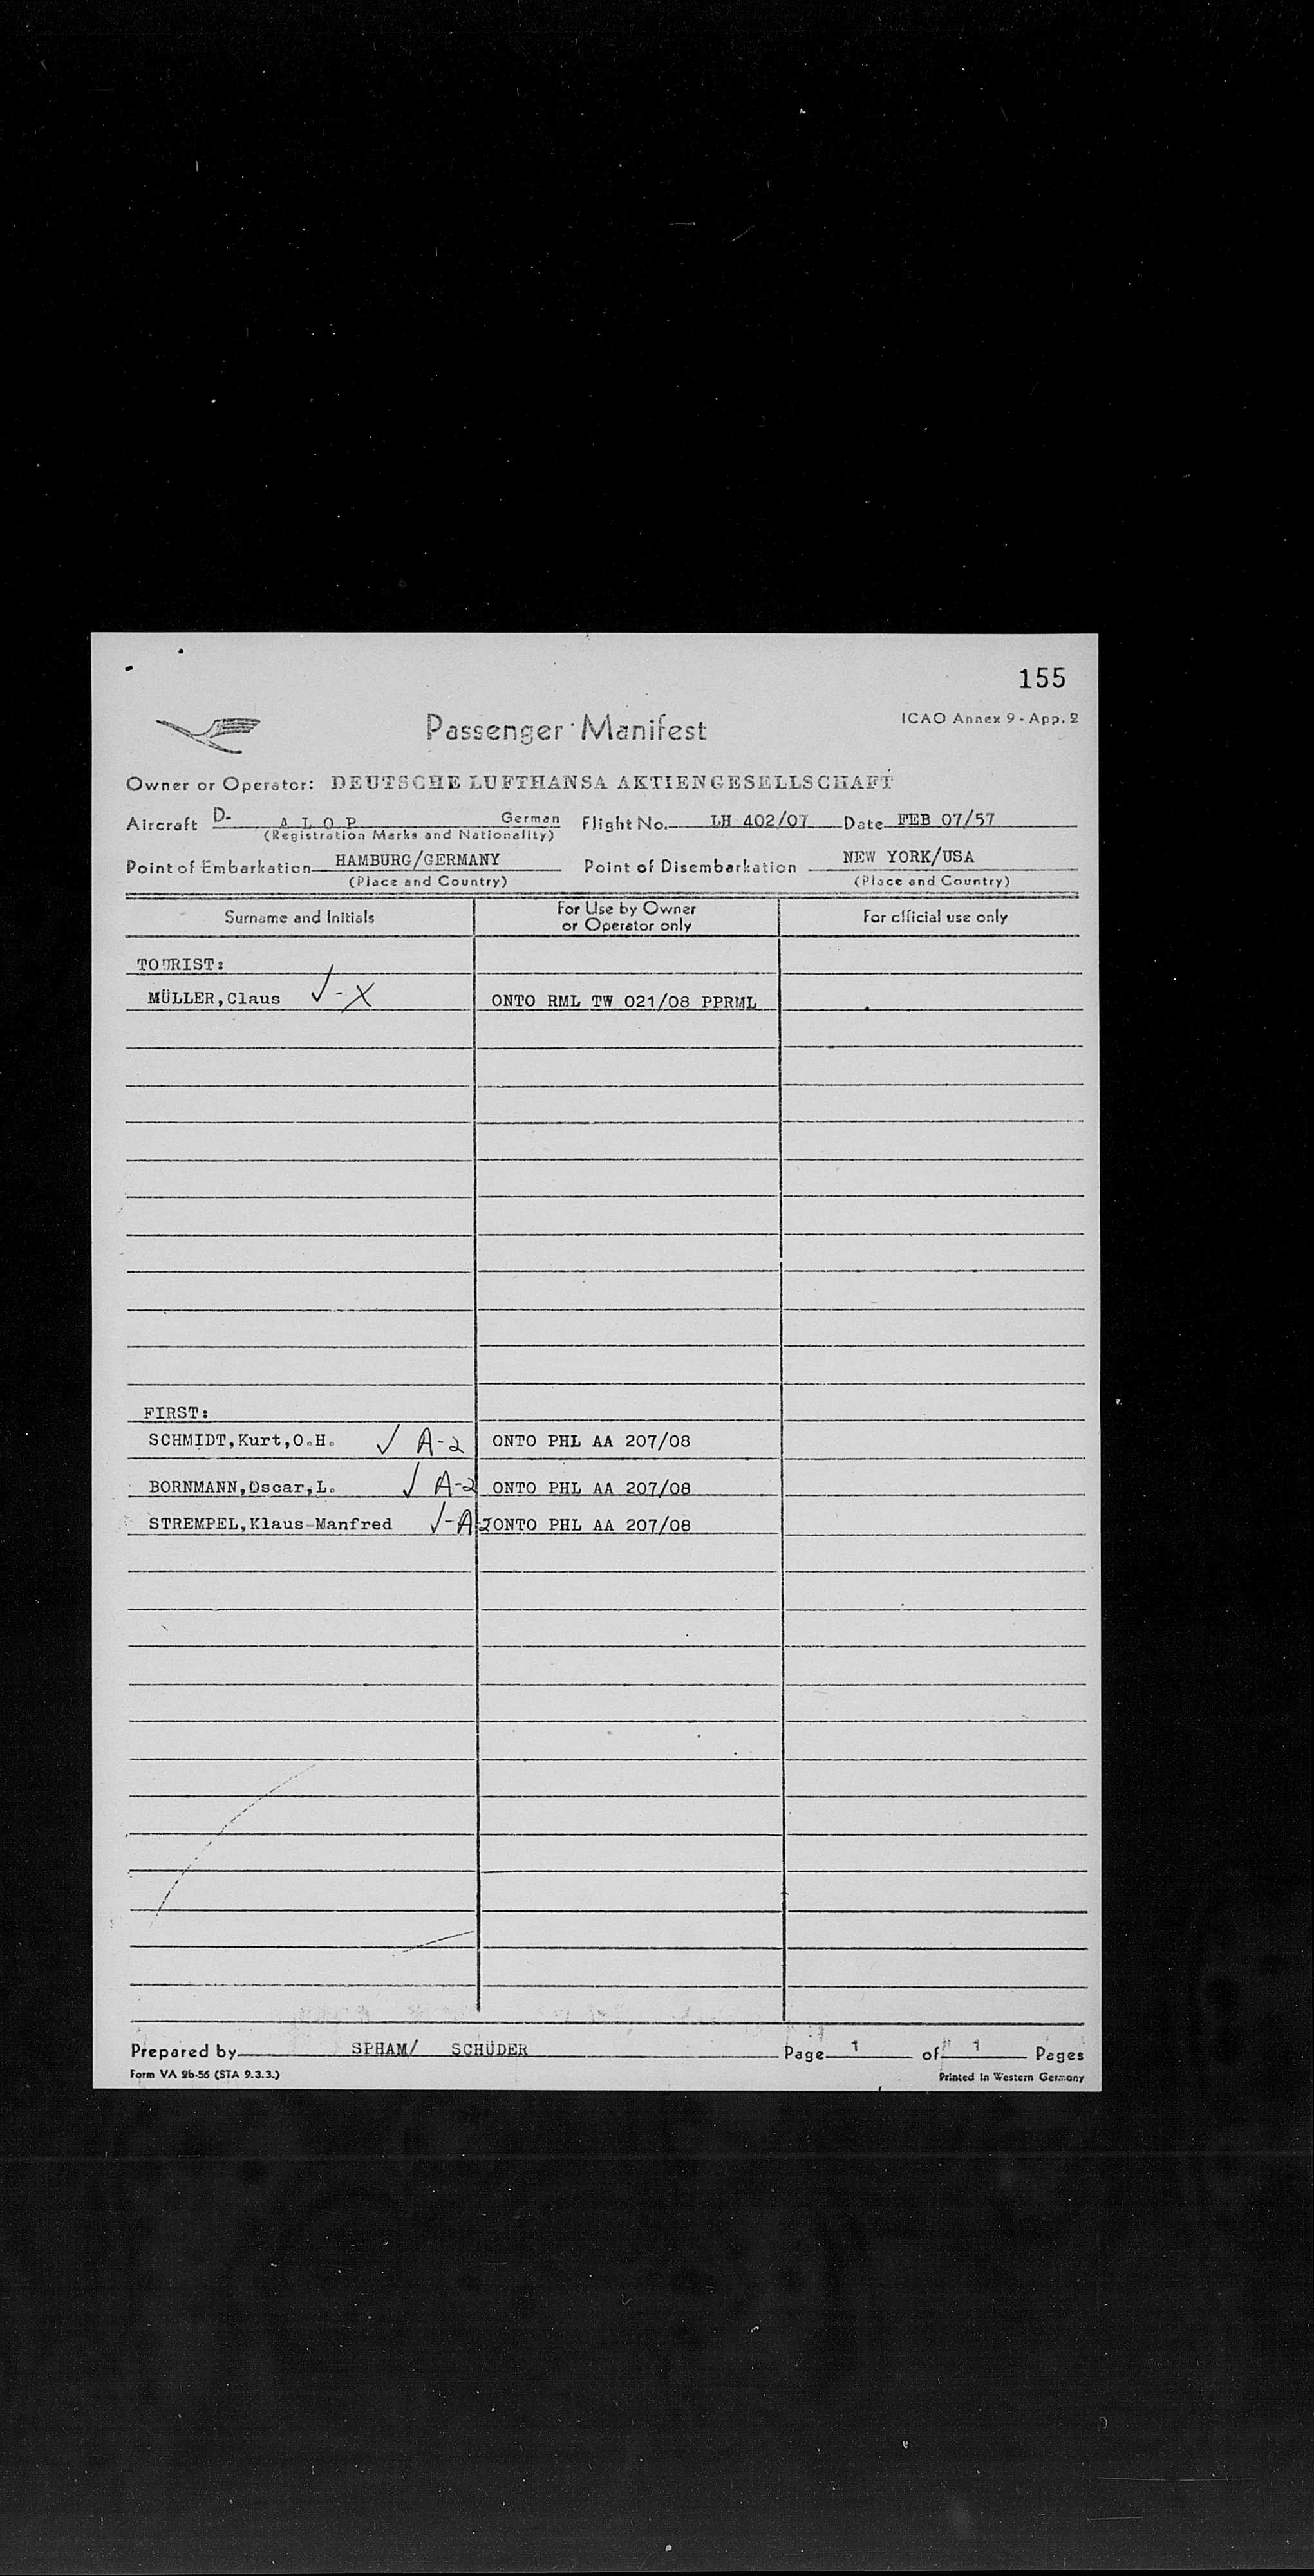 155
Passenger Manifest
ICAO Annex 9 - App. 2
Owner or Operator: DEUTSCHE LUFTHANSA AKTIENGESELLSCHAFT
Aircraft D- A L O P German Flight No. LH 402/07 Date FEB 07/57
(Registration Marks and Nationality)
Point of Embarkation HAMBURG/GERMANY Point of Disembarkation NEW YORK/USA
(Place and Country) (Place and Country)
Surname and Initials For Use by Owner or Operator only For official use only
TOURIST:
MÜLLER,Claus ✓-X ONTO RML TW 021/08 PPRML
FIRST:
SCHMIDT,Kurt,O.H. ✓ A-2 ONTO PHL AA 207/08
BORNMANN,Oscar,L. ✓ A-2 ONTO PHL AA 207/08
STREMPEL,Klaus-Manfred ✓-A-2 ONTO PHL AA 207/08
Prepared by SPHAM/ SCHÜDER Page 1 of 1 Pages
Form VA 2b-56 (STA 9.3.3.) Printed in Western Germany